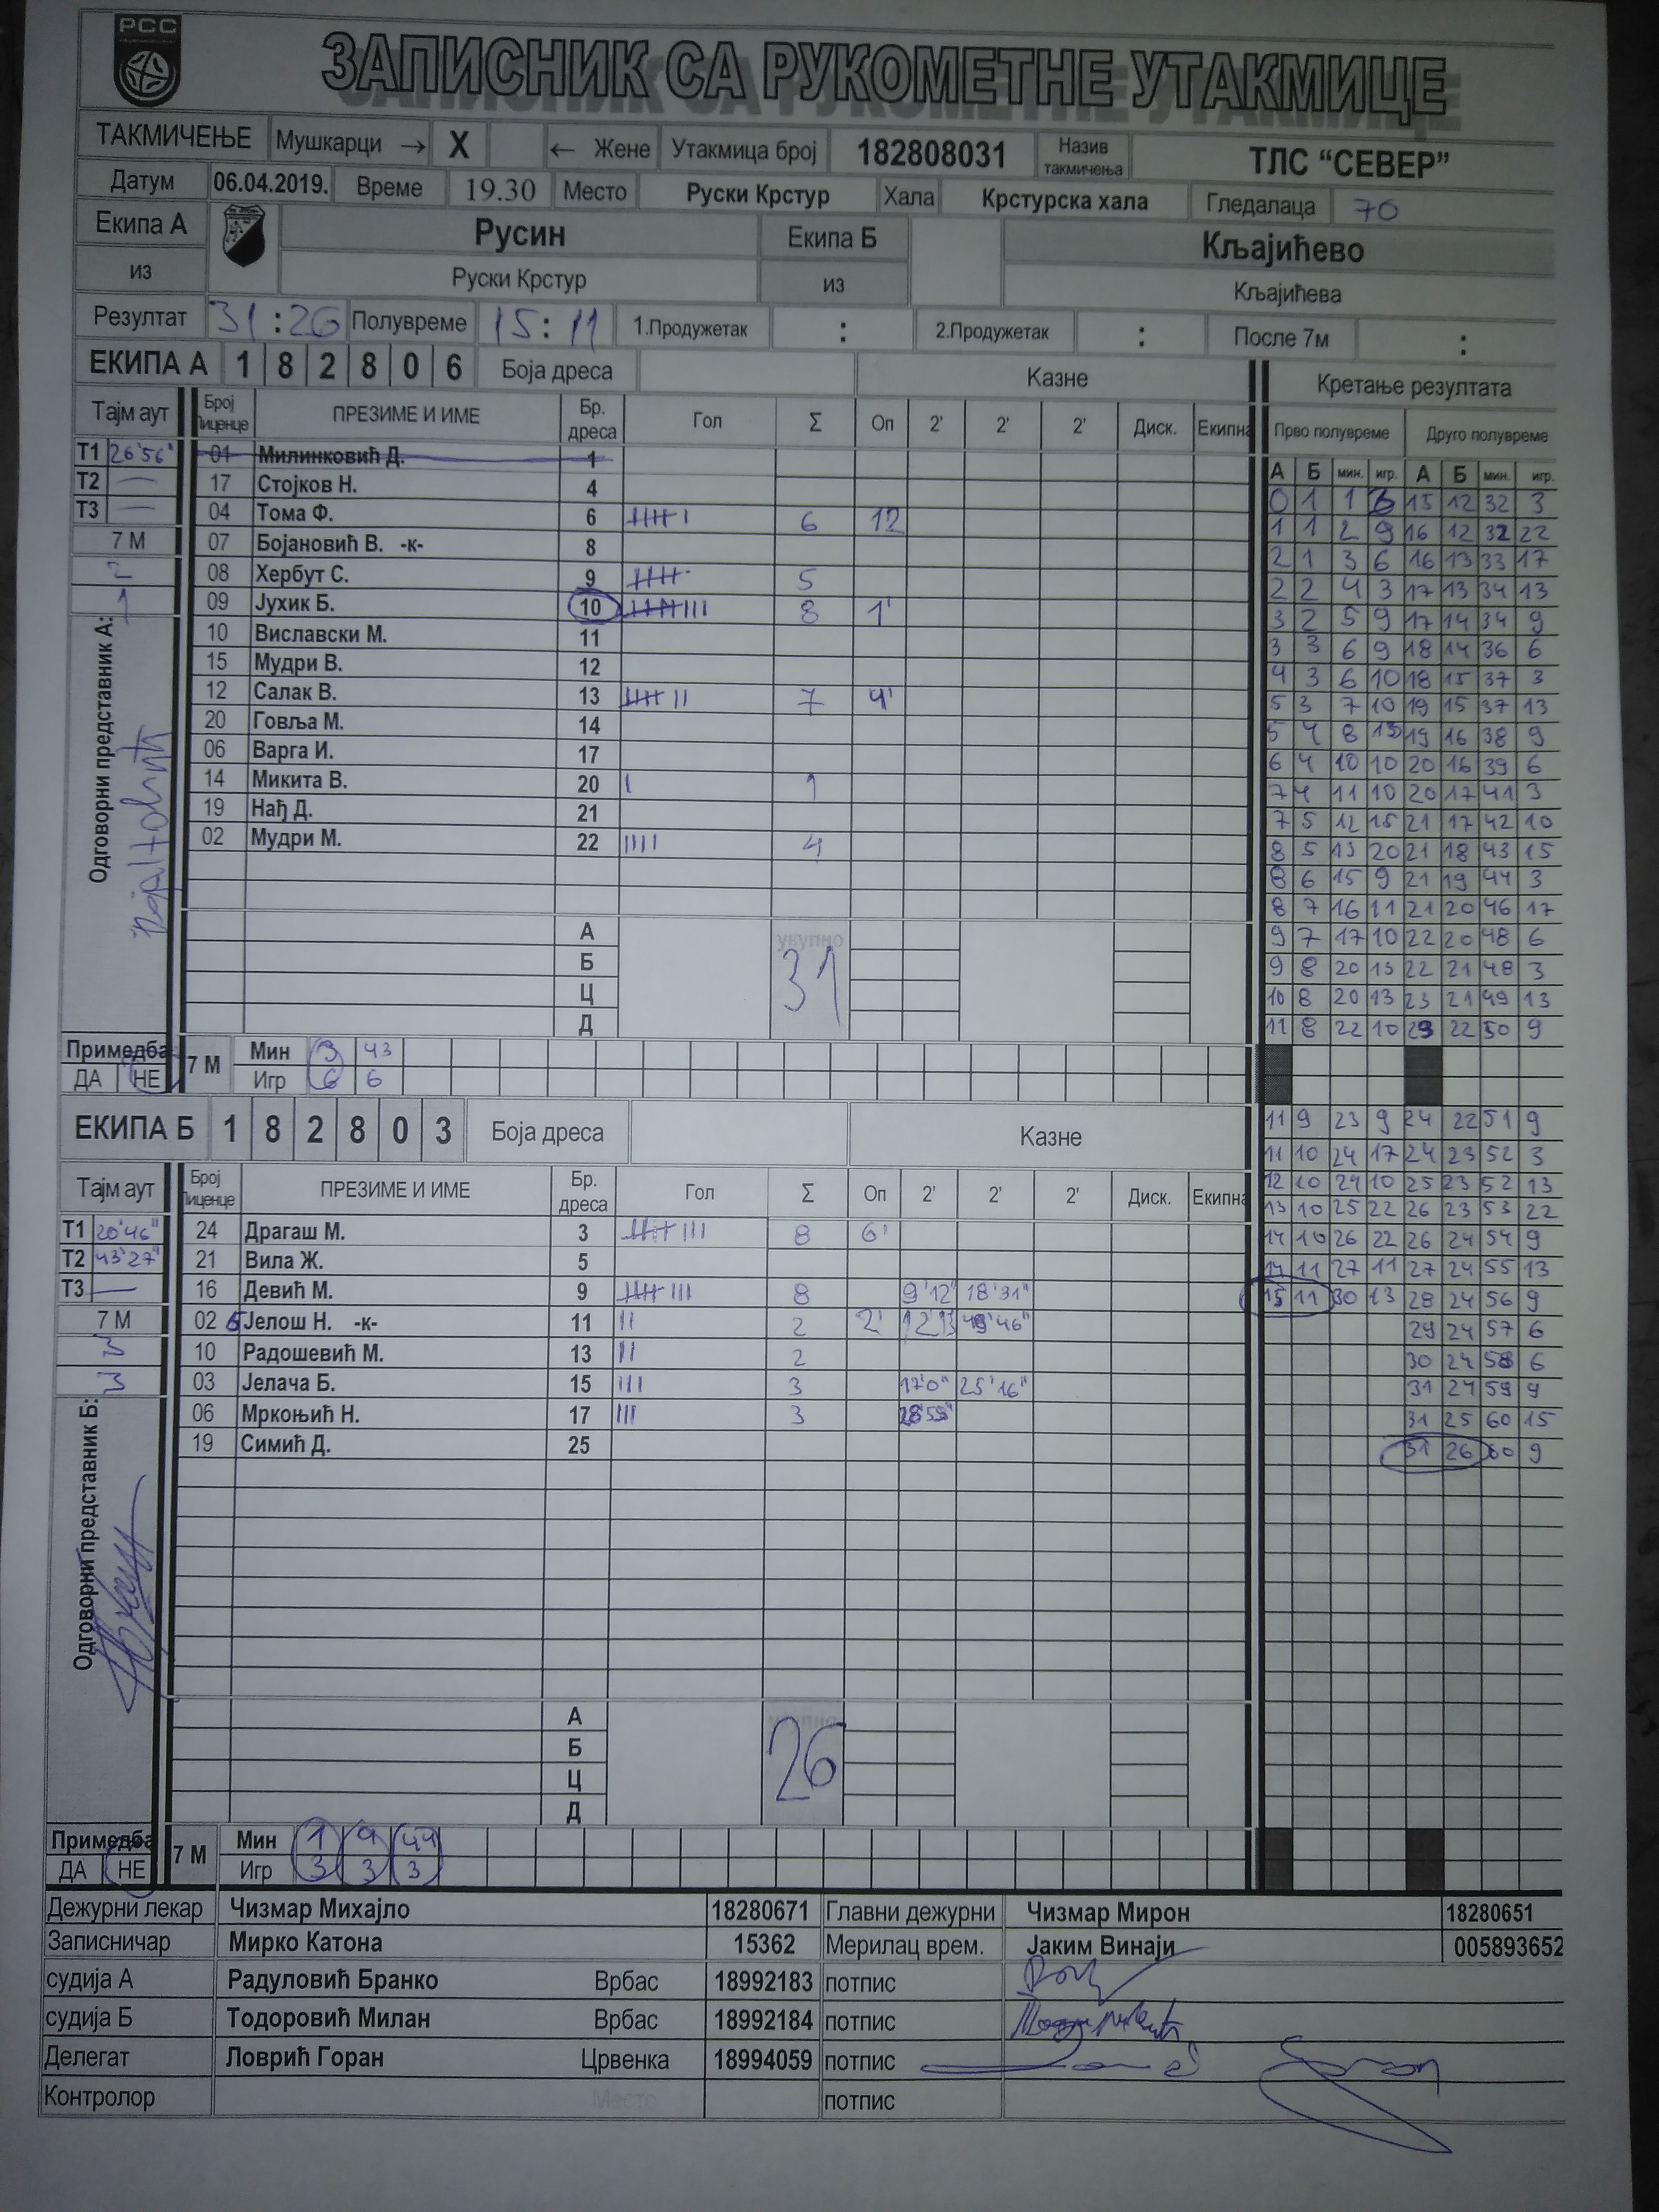 РСС
ЗАПИСНИК СА РУКОМЕТНЕ УТАКМИЦЕ
ТАКМИЧЕЊЕ Мушкарци → X ← Жене Утакмица број 182808031 Назив такмичења ТЛС “СЕВЕР”
Датум 06.04.2019. Време 19.30 Место Руски Крстур Хала Крстурска хала Гледалаца 70
Екипа А Русин Екипа Б Кљајићево
из Руски Крстур из Кљајићева
Резултат 31:26 Полувреме 15:11 1.Продужетак : 2.Продужетак : После 7м :
ЕКИПА А 1 8 2 8 0 6 Боја дреса Казне Кретање резултата
Тајм аут Број Лиценце ПРЕЗИМЕ И ИМЕ Бр. дреса Гол Σ Оп 2' 2' 2' Диск. Екипна Прво полувреме Друго полувреме
А Б мин. игр. А Б мин. игр.
Т1 26'56" 01 Милинковић Д. 1
Т2 — 17 Стојков Н. 4 0 1 1 3 15 12 32 3
Т3 — 04 Тома Ф. 6 6 12 1 1 2 9 16 12 32 22
7 М 07 Бојановић В. -к- 8 2 1 3 6 16 13 33 17
2 08 Хербут С. 9 5 2 2 4 3 17 13 34 13
1 09 Јухик Б. 10 8 1' 3 2 5 9 17 14 34 9
10 Виславски М. 11 3 3 6 9 18 14 36 6
15 Мудри В. 12 4 3 6 10 18 15 37 3
12 Салак В. 13 7 4' 5 3 7 10 19 15 37 13
20 Говља М. 14 5 4 8 13 19 16 38 9
06 Варга И. 17 6 4 10 10 20 16 39 6
14 Микита В. 20 1 7 4 11 10 20 17 41 3
19 Нађ Д. 21 7 5 12 15 21 17 42 10
02 Мудри М. 22 4 8 5 13 20 21 18 43 15
8 6 15 9 21 19 44 3
8 7 16 11 21 20 46 17
Одговорни представник А:
А укупно 9 7 17 10 22 20 48 6
Б 31 9 8 20 15 22 21 48 3
Ц 10 8 20 13 23 21 49 13
Д 11 8 22 10 23 22 50 9
Примедба 7 М Мин 3 43
ДА НЕ Игр 6 6
ЕКИПА Б 1 8 2 8 0 3 Боја дреса Казне 11 9 23 9 24 22 51 9
11 10 24 17 24 23 52 3
Тајм аут Број Лиценце ПРЕЗИМЕ И ИМЕ Бр. дреса Гол Σ Оп 2' 2' 2' Диск. Екипна 12 10 24 10 25 23 52 13
13 10 25 22 26 23 53 22
Т1 20'46" 24 Драгаш М. 3 8 6' 14 10 26 22 26 24 54 9
Т2 43'27" 21 Вила Ж. 5 14 11 27 11 27 24 55 13
Т3 — 16 Девић М. 9 8 9'12" 18'31" 15 11 30 13 28 24 56 9
7 М 02 Јелош Н. -к- 11 2 2' 29 24 57 6
3 10 Радошевић М. 13 2 30 24 58 6
3 03 Јелача Б. 15 3 17'0" 25'16" 31 24 59 9
06 Мркоњић Н. 17 3 31 25 60 15
19 Симић Д. 25 31 26 60 9
Одговорни представник Б:
А укупно
Б 26
Ц
Д
Примедба 7 М Мин 1 4 44
ДА НЕ Игр 3 3 3
Дежурни лекар Чизмар Михајло 18280671 Главни дежурни Чизмар Мирон 18280651
Записничар Мирко Катона 15362 Мерилац врем. Јаким Винаји 005893652
судија А Радуловић Бранко Врбас 18992183 потпис
судија Б Тодоровић Милан Врбас 18992184 потпис
Делегат Ловрић Горан Црвенка 18994059 потпис
Контролор Место потпис